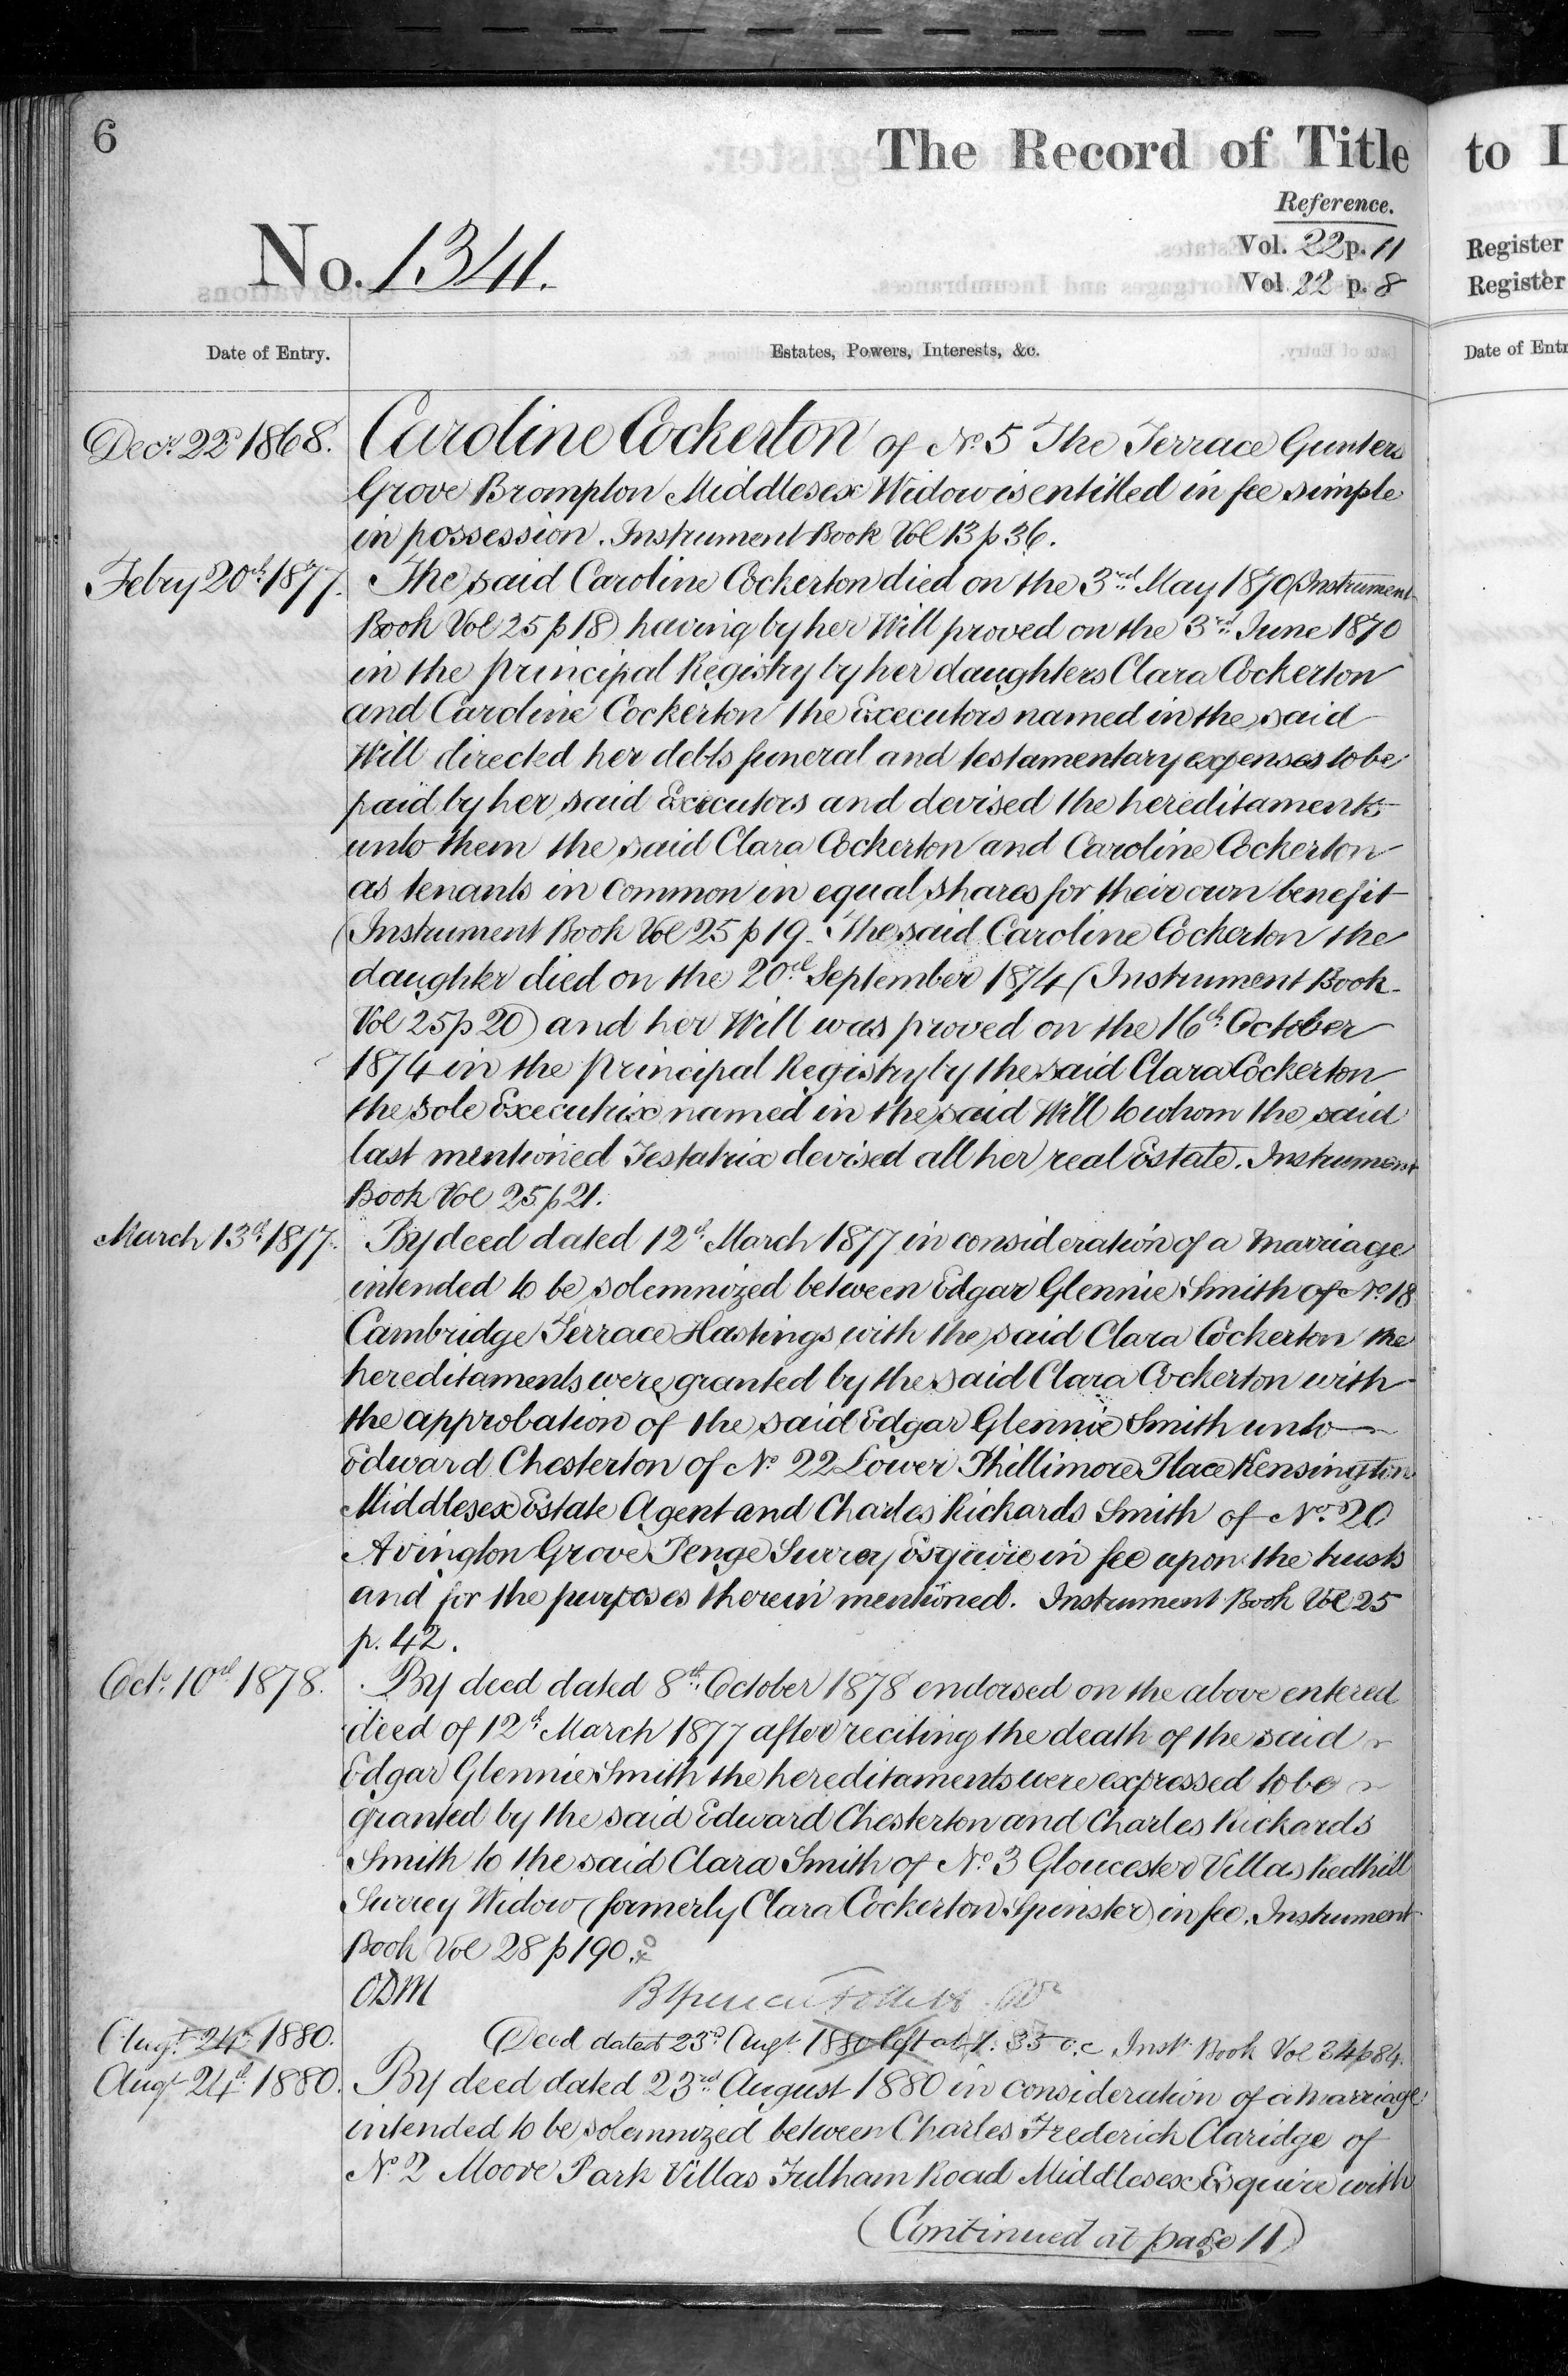 6
The Record of Title
to
Reference.
No. 1341.
Vol. 22 p. 11
Register
Vol 22 p. 8
Register
Date of Entry.
Estates, Powers, Interests, &c.
Date of Entr
Decr. 22d 1868.
Caroline Cockerton of No. 5 The Terrace Gunters
Grove Brompton Middlesex Widow is entitled in fee simple
in possession. Instrument Book Vol 13 p 36.
Febry 20th 1877.
The said Caroline Cockerton died on the 3rd May 1870 (Instrument
Book Vol 25 p 18) having by her Will proved on the 3rd June 1870
in the principal Registry by her daughters Clara Cockerton
and Caroline Cockerton the Executors named in the said
Will directed her debts funeral and testamentary expenses to be
paid by her said Executors and devised the hereditaments
unto them the said Clara Cockerton and Caroline Cockerton
as tenants in common in equal shares for their own benefit
(Instrument Book Vol 25 p 19. The said Caroline Cockerton the
daughter died on the 20th September 1874 (Instrument Book
Vol 25 p 20) and her Will was proved on the 16th October
1874 in the principal Registry by the said Clara Cockerton
the sole Executrix named in the said Will to whom the said
last mentioned Testatrix devised all her real Estate. Instrument
Book Vol 25 p 21.
March 13th 1877.
By deed dated 12th March 1877 in consideration of a marriage
intended to be solemnized between Edgar Glennie Smith of No. 18
Cambridge Terrace Hastings with the said Clara Cockerton the
hereditaments were granted by the said Clara Cockerton with
the approbation of the said Edgar Glennie Smith unto
Edward Chesterton of No 22 Lower Phillimore Place Kensington
Middlesex Estate Agent and Charles Rickards Smith of No. 20
Avington Grove Penge Surrey Esquire in fee upon the trusts
and for the purposes therein mentioned. Instrument Book Vol 25
p. 42.
Octr. 10th 1878.
By deed dated 8th October 1878 endorsed on the above entered
deed of 12th March 1877 after reciting the death of the said
Edgar Glennie Smith the hereditaments were expressed to be
granted by the said Edward Chesterton and Charles Rickards
Smith to the said Clara Smith of No 3 Gloucester Villas Redhill
Surrey Widow (formerly Clara Cockerton Spinster) in fee. Instrument
Book Vol 28 p 190.
ODM
Augt. 24th 1880.
Deed dated 23rd Augt 1880 left at 1.35 o.c Inst. Book Vol 34 p 84.
Augt 24th 1880.
By deed dated 23rd August 1880 in consideration of a marriage
intended to be solemnized between Charles Frederick Claridge of
No. 2 Moore Park Villas Fulham Road Middlesex Esquire with
(Continued at page 11)